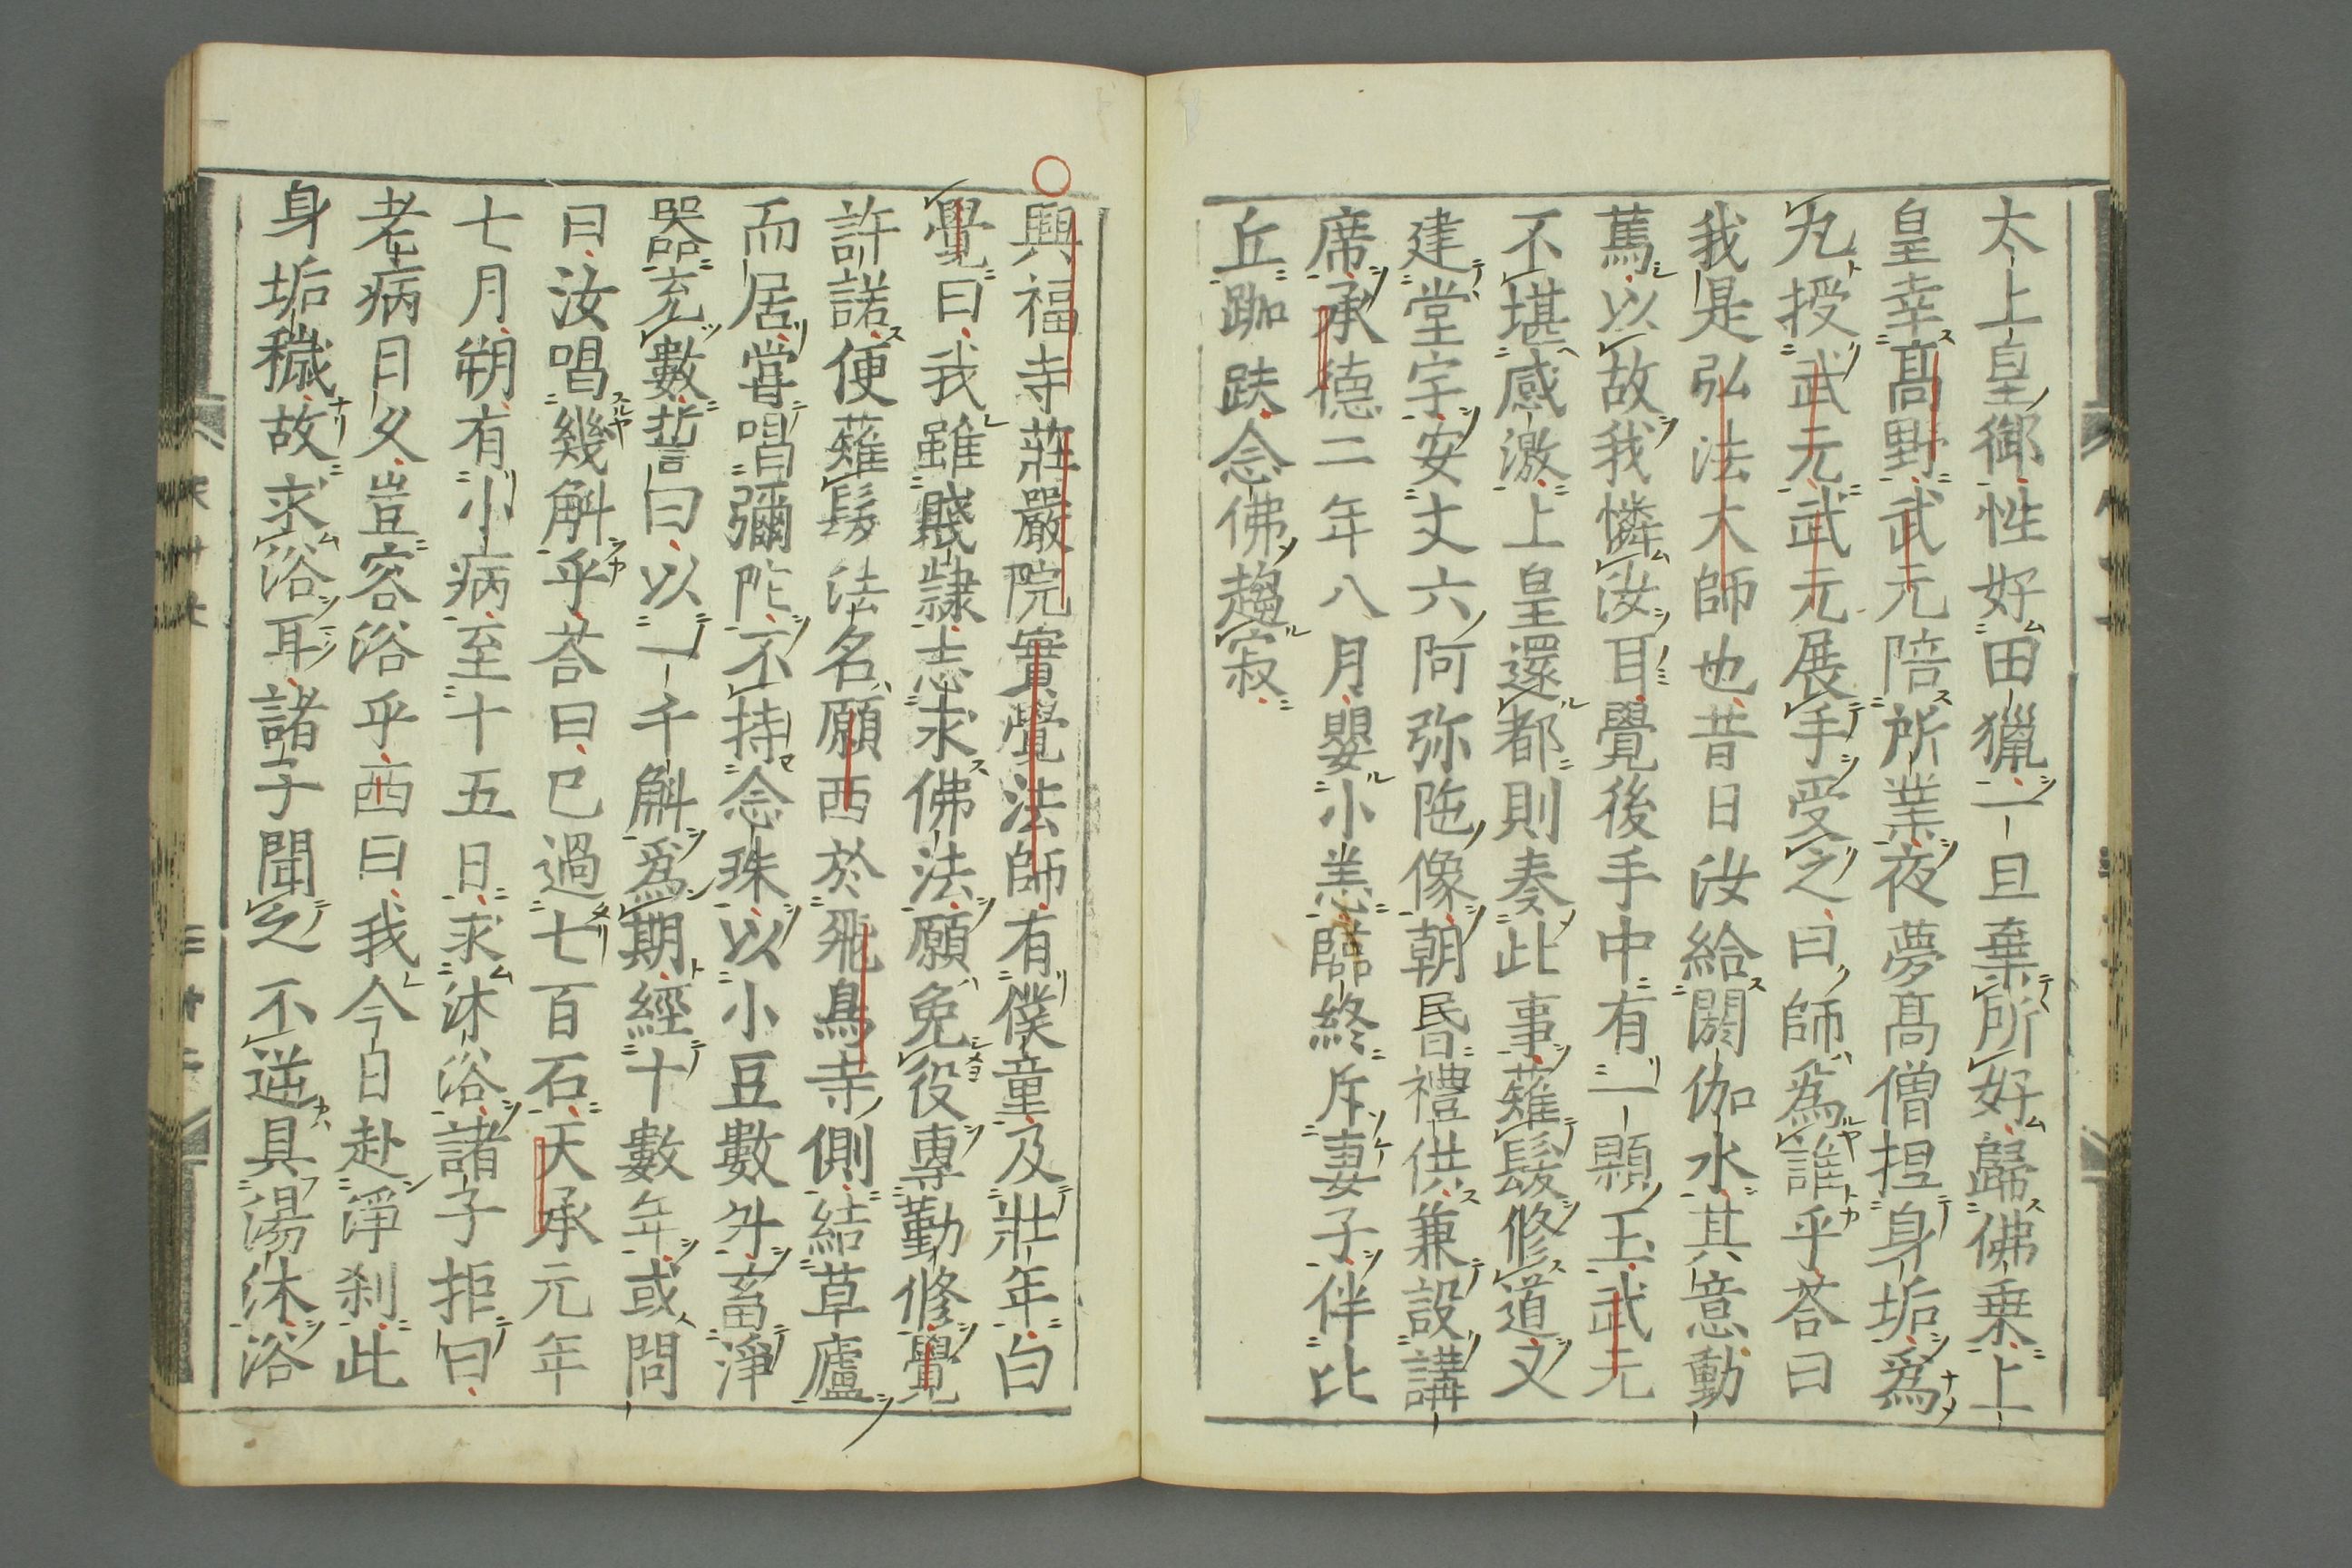 太上皇御性好田獵一旦棄所好歸佛乗上
皇幸高野武元陪所業夜夢高僧担身垢爲
丸授武元武元展手受之曰師爲誰乎荅曰
我是弘法大師也昔日汝給閼伽水其意動
篤以故我憐汝耳覺後手中有一顆玉武元
不堪感激上皇還都則奏此事薙髮修道又
建堂宇安丈六阿弥陁像朝昬禮供兼設講
席承德二年八月嬰小恙臨終斥妻子伴比
丘跏趺念佛趨寂
○興福寺莊嚴院實覺法師有僕童及壯年白
覺曰我雖賤隷志求佛法願免役專勤修覺
許諾便薙髮法名願西於飛鳥寺側結草廬
而居嘗唱彌陀不持念珠以小豆數升畜淨
器充數誓曰以一千斛爲期經十數年或問
曰汝唱幾斛乎荅曰已過七百石天承元年
七月朔有小病至十五日求沐浴諸子拒曰
老病日久豈容浴乎西曰我今日赴淨刹此
身垢穢故求浴耳諸子聞之不逆具湯沐浴